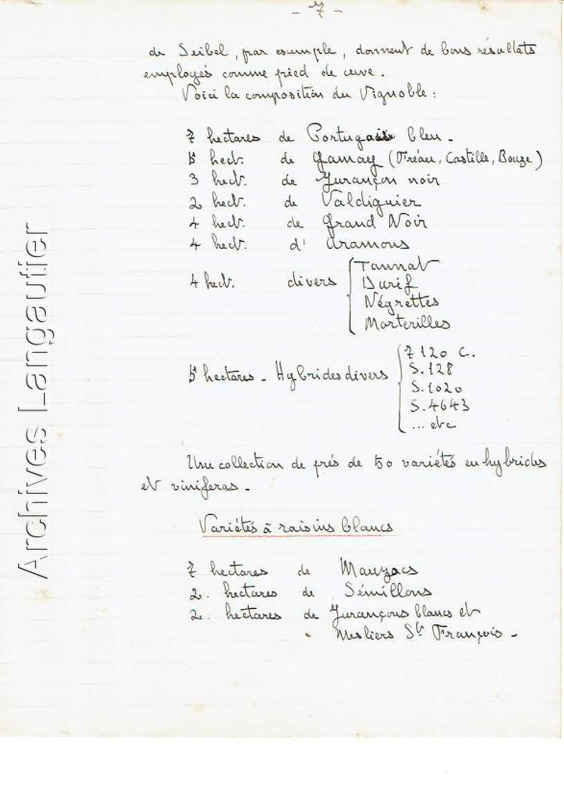 - 7 -
de Seibel, par exemple, donnent de bons résultats
employés comme pied de cuve.
Voici la composition du Vignoble :
7 hectares de Portugais bleu -
5 hect. de Gamay (Fréau, Castille, Bouze)
3 hect. de Jurançon noir
2 hect. de Valdiguier
4 hect. de Grand Noir
4 hect. d' Aramons
4 hect. divers { Tannat
Durif
Négrettes
Morterilles
5 hectares - Hybrides divers { 7120 C.
S.128
S.1020
S.4643
... etc
Une collection de près de 50 variétés en hybrides
et viniferas -
Variétés à raisins blancs
7 hectares de Mauzacs
2. hectares de Sémillons
2. hectares de Jurançons blancs et
Mesliers St François -
Archives Langautier